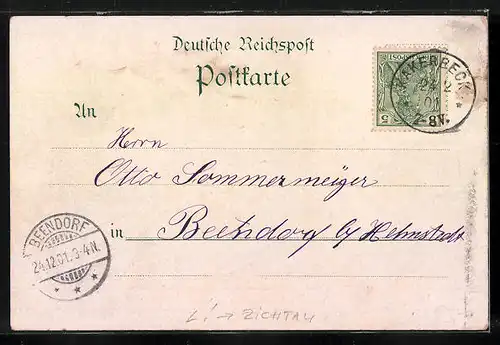 Deutsche Reichspost
Postkarte
An
Herrn
Otto Sommermeyer
in Beendorf b/ Helmstedt
KAKERBECK
24 12
01
7-8V.
5
BEENDORF
24.12.01.3-4N.
L! → ZICHTAU